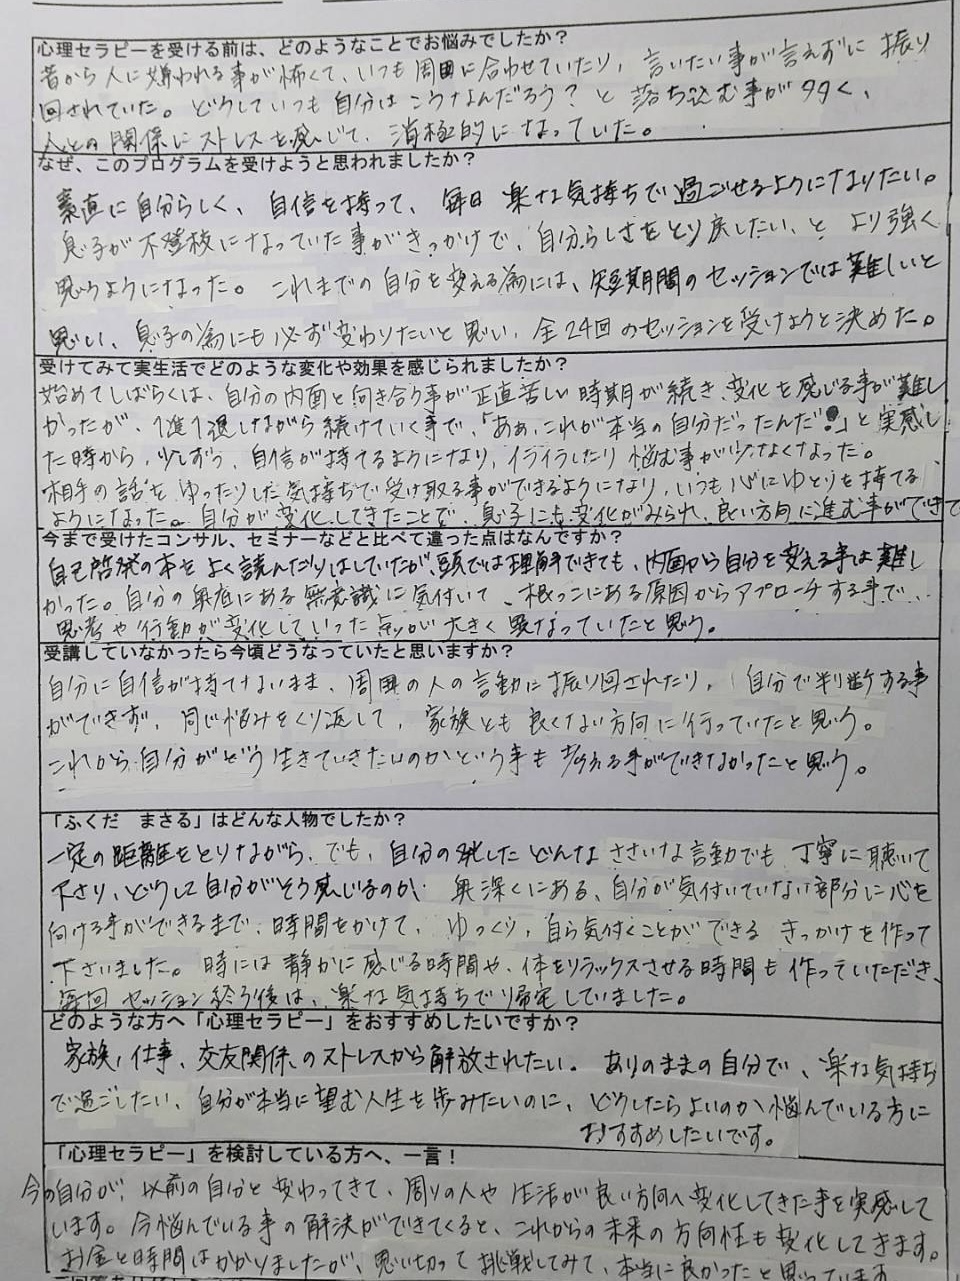 心理セラピーを受ける前は、どのようなことでお悩みでしたか？
昔から人に嫌われる事が怖くて、いつも周囲に合わせていたり、言いたい事が言えずに振り
回されていた。どうしていつも自分はこうなんだろう？と落ち込む事が多く、
人との関係にストレスを感じて、消極的になっていた。
なぜ、このプログラムを受けようと思われましたか？
素直に自分らしく、自信を持って、毎日楽な気持ちで過ごせるようになりたい。
息子が不登校になっていた事がきっかけで、自分らしさをとり戻したい、と より強く
思うようになった。これまでの自分を変える為には、短期間のセッションでは難しいと
思い、息子の為にも必ず変わりたいと思い、全24回のセッションを受けようと決めた。
受けてみて実生活でどのような変化や効果を感じられましたか？
始めてしばらくは、自分の内面と向き合う事が正直苦しい時期が続き、変化を感じる事が難し
かったが、1進1退しながら続けていく事で、「あぁ、これが本当の自分だったんだ!」と実感し
た時から、少しずつ、自信が持てるようになり、イライラしたり悩む事が少なくなった。
相手の話をゆったりした気持ちで受け取る事ができるようになり、いつも心にゆとりを持てる
ようになった。自分が変化してきたことで、息子にも変化がみられ、良い方向に進む事ができて
今まで受けたコンサル、セミナーなどと比べて違った点はなんですか？
自己啓発の本をよく読んだりはしていたが、頭では理解できても、内面から自分を変える事は難し
かった。自分の奥底にある無意識に気付いて、根っこにある原因からアプローチする事で、
思考や行動が変化していった点が大きく異なっていたと思う。
受講していなかったら今頃どうなっていたと思いますか？
自分に自信が持てないまま、周囲の人の言動に振り回されたり、自分で判断する事
ができず、同じ悩みをくり返して、家族とも良くない方向に行っていたと思う。
これから自分がどう生きていきたいのかという事も考える事ができなかったと思う。
「ふくだ　まさる」はどんな人物でしたか？
一定の距離をとりながら、でも、自分の発したどんなささいな言動でも丁寧に聴いて
下さり、どうして自分がそう感じるのか、奥深くにある、自分が気付いていない部分に心を
向ける事ができるまで、時間をかけて、ゆっくり、自ら気付くことができるきっかけを作って
下さいました。時には静かに感じる時間や、体をリラックスさせる時間も作っていただき、
毎回セッション終了後は、楽な気持ちで帰宅していました。
どのような方へ「心理セラピー」をおすすめしたいですか？
家族、仕事、交友関係のストレスから解放されたい。ありのままの自分で、楽な気持ち
で過ごしたい、自分が本当に望む人生を歩みたいのに、どうしたらよいのか悩んでいる方に
おすすめしたいです。
「心理セラピー」を検討している方へ、一言！
今の自分が、以前の自分と変わってきて、周りの人や生活が良い方向へ変化してきた事を実感して
います。今悩んでいる事の解決ができてくると、これからの未来の方向性も変化してきます。
お金と時間はかかりましたが、思い切って挑戦してみて、本当に良かったと思っています